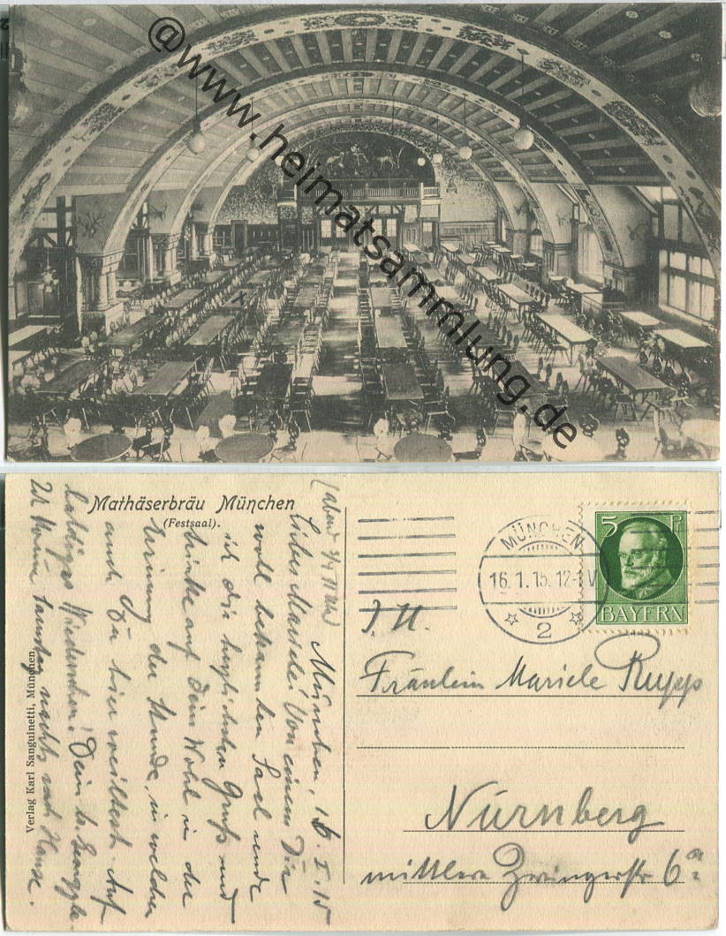 @www.heimatsammlung.de
Mathäserbräu München
(Festsaal).
Verlag Karl Sanguinetti, München
München, 16. I. 15
Liebes Mariele! Von einem Dir
wohl bekannten Saal sende
ich die herzlichsten Grüße und
trinke auf Dein Wohl in der
Erinnerung der Stunde, in welcher
auch Du hier weiltest. Auf
baldiges Wiedersehen! Dein
nachts nach Hause.
MÜNCHEN
16.1.15. 12-1 V
2
5 P
BAYERN
Fräulein Mariele Rupp
Nürnberg
mittlere Zwingerstr 6a